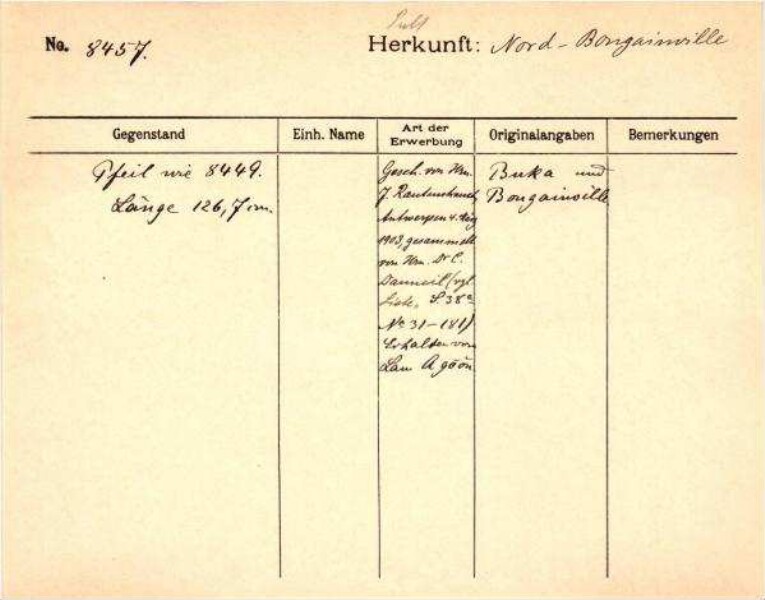 No. 8457.
Herkunft: Nord-Bougainville
Gegenstand
Einh. Name
Art der
Erwerbung
Originalangaben
Bemerkungen
Pfeil wie 8449.
Länge 126,7 cm.
Gesch. von Hrn.
J. Rautenstrauch,
Antwerpen 4. Aug
1903, gesammelt
von Hrn. Dr C.
(vgl.
Liste, S. 38a
No 31-181)
Erhalten von
Lau
Buka und
Bougainville